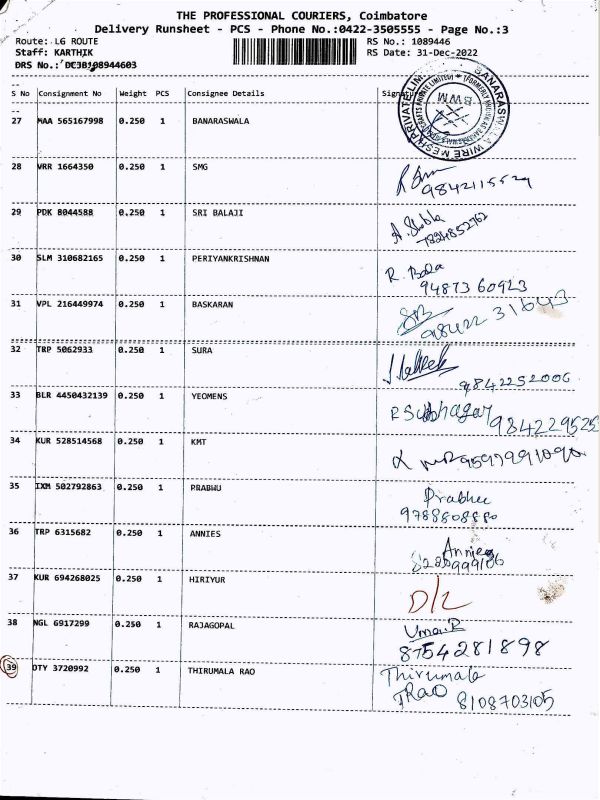 THE PROFESSIONAL COURIERS, Coimbatore
Delivery Runsheet - PCS - Phone No.:0422-3505555 - Page No.:3
Route: LG ROUTE RS No.: 1089446
Staff: KARTHIK RS Date: 31-Dec-2022
DRS No.:
S No Consignment No Weight PCS Consignee Details
27 MAA 565167998 0.250 1 BANARASWALA
BWM
28 VRR 1664350 0.250 1 SMG
9842115524
29 PDK 8044588 0.250 1 SRI BALAJI
30 SLM 310682165 0.250 1 PERIYANKRISHNAN
R. Bala
94873 60923
31 VPL 216449974 0.250 1 BASKARAN
98422 31643
32 TRP 5062933 0.250 1 SURA
9842252006
33 BLR 4450432139 0.250 1 YEOMENS
984229525
34 KUR 528514568 0.250 1 KMT
35 IXM 502792863 0.250 1 PRABHU
Prabhu
9788808880
36 TRP 6315682 0.250 1 ANNIES
Annies
37 KUR 694268025 0.250 1 HIRIYUR
D/L
38 NGL 6917299 0.250 1 RAJAGOPAL
Uma.R
8754281898
39 OTY 3720992 0.250 1 THIRUMALA RAO
Thirumala
Rao 8108703105